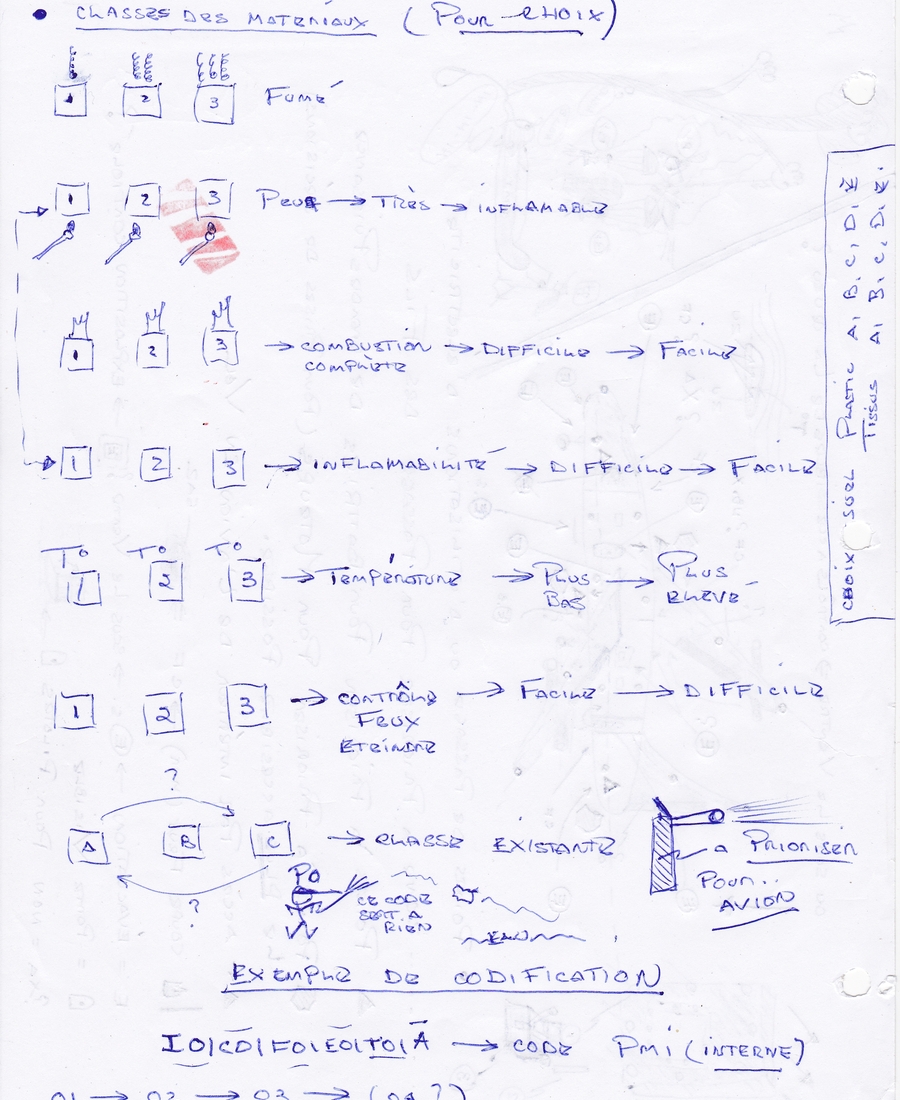 • CLASSES DES MATERIAUX (POUR CHOIX)
1 2 3 FUMÉ
1 2 3 PEUX → TRÈS → INFLAMABLE
1 2 3 → COMBUSTION → DIFFICILE → FACILE
COMPLÈTE
1 2 3 → INFLAMABILITÉ → DIFFICILE → FACILE
T° T° T°
1 2 3 → TEMPÉRATURE → PLUS BAS → PLUS ELEVÉ
1 2 3 → CONTRÔLE → FACILE → DIFFICILE
FEUX
ETEINDRE
?
A B C → CLASSE EXISTANTE
?
PO
CE CODE
SERT A
RIEN
EAU
A PRIORISER
POUR..
AVION
EXEMPLE DE CODIFICATION
IO|CO|FO|EO|TO|A → CODE PMI (INTERNE)
01 → 02 → 03 → (04?)
CHOIX SUEL PLASTIC A, B, C, D, E
TISSUS A, B, C, D, E.